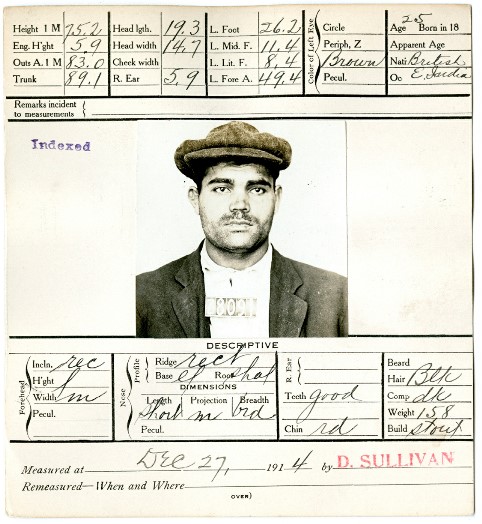 Height 1 M 75.2 Head lgth. 19.3 L. Foot 26.2 Circle Age 25 Born in 18
Eng. H'ght 5.9 Head width 14.7 L. Mid. F. 11.4 Color of Left Eye Periph, Z Apparent Age
Outs A. 1 M 83.0 Cheek width L. Lit. F. 8.4 Brown Nati British
Trunk 89.1 R. Ear 5.9 L. Fore A. 49.4 Pecul. Oc E. India
Remarks incident
to measurements
Indexed
DESCRIPTIVE
Forehead Incln. rec Nose Profile Ridge rect R. Ear Beard
H'ght Base el Root shal Hair Blk
DIMENSIONS
Width m Length Projection Breadth Teeth good Comp dk
Pecul. Short m brd Weight 158
Pecul. Chin rd Build stout
Measured at Dec 27, 1914 by D. SULLIVAN
Remeasured—When and Where
OVER)